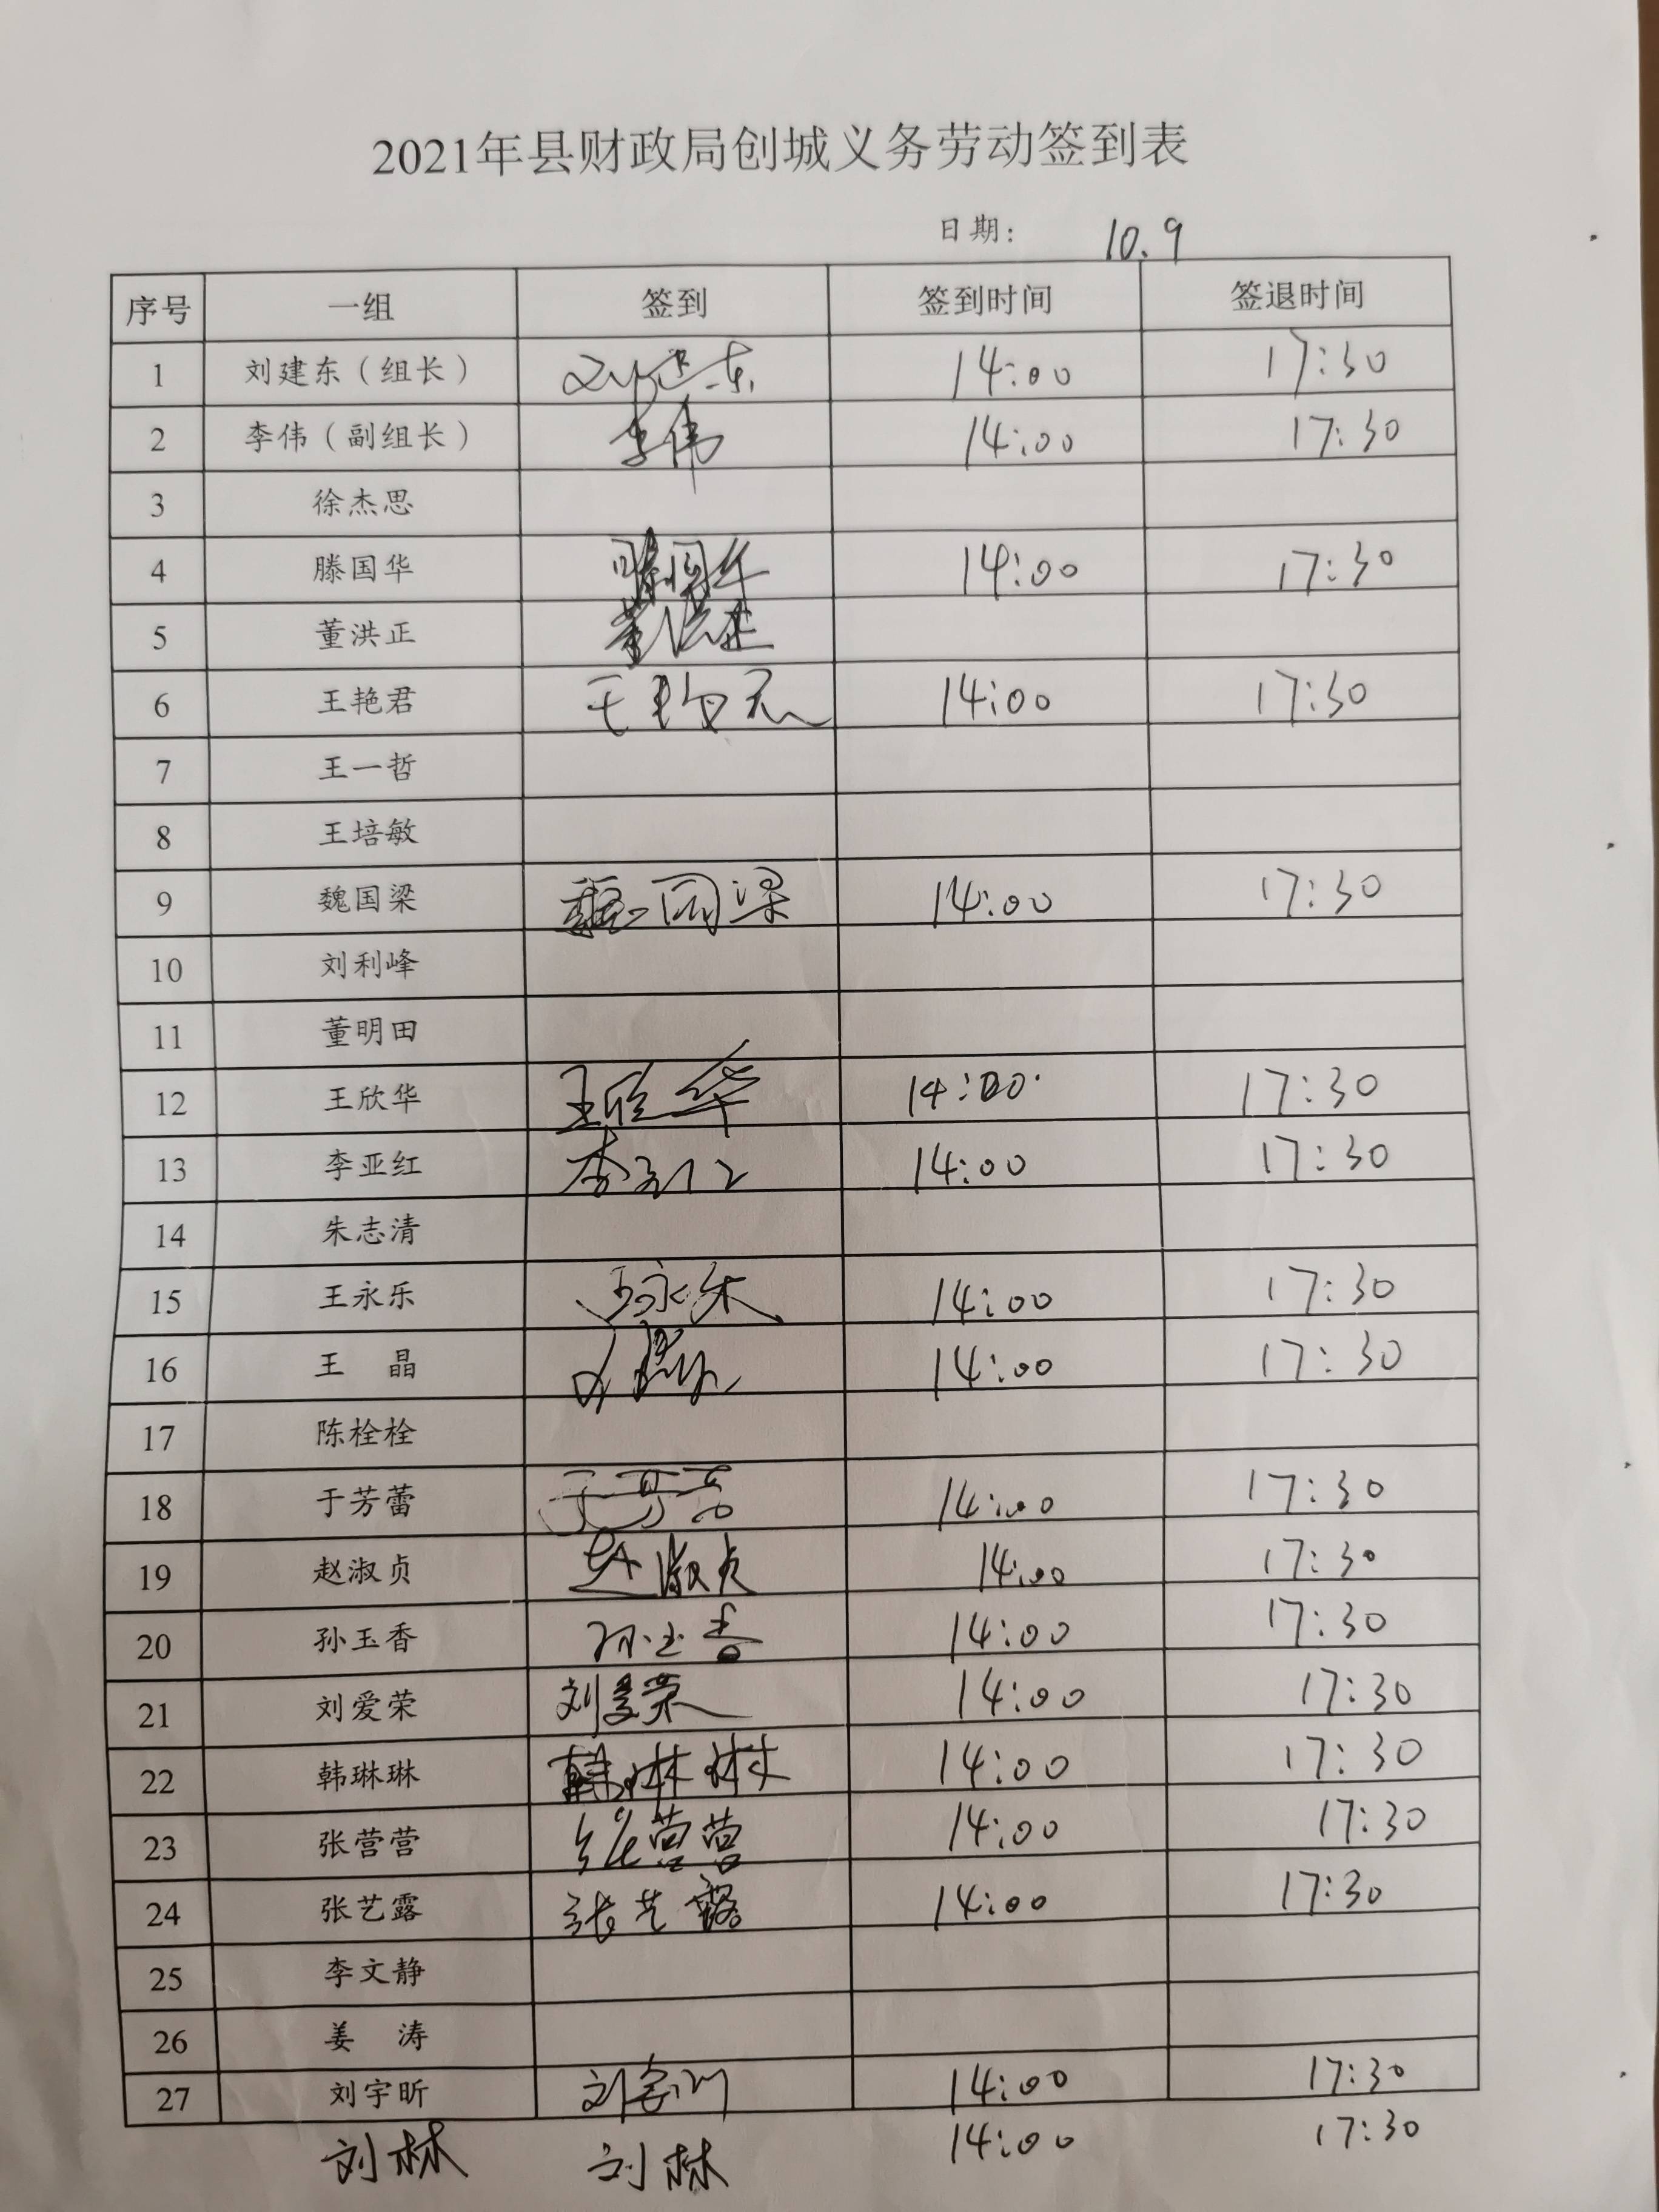 2021年县财政局创城义务劳动签到表
日期： 10.9
序号 一组 签到 签到时间 签退时间
1 刘建东（组长） 刘建东 14:00 17:30
2 李伟（副组长） 李伟 14:00 17:30
3 徐杰思
4 滕国华 滕国华 14:00 17:30
5 董洪正 董洪正
6 王艳君 王艳君 14:00 17:30
7 王一哲
8 王培敏
9 魏国梁 魏国梁 14:00 17:30
10 刘利峰
11 董明田
12 王欣华 王欣华 14:00 17:30
13 李亚红 李亚红 14:00 17:30
14 朱志清
15 王永乐 王永乐 14:00 17:30
16 王 晶 14:00 17:30
17 陈栓栓
18 于芳蕾 于芳蕾 14:00 17:30
19 赵淑贞 赵淑贞 14:00 17:30
20 孙玉香 孙玉香 14:00 17:30
21 刘爱荣 刘爱荣 14:00 17:30
22 韩琳琳 韩琳琳 14:00 17:30
23 张营营 张营营 14:00 17:30
24 张艺露 张艺露 14:00 17:30
25 李文静
26 姜 涛
27 刘宇昕 刘宇昕 14:00 17:30
刘林 刘林 14:00 17:30